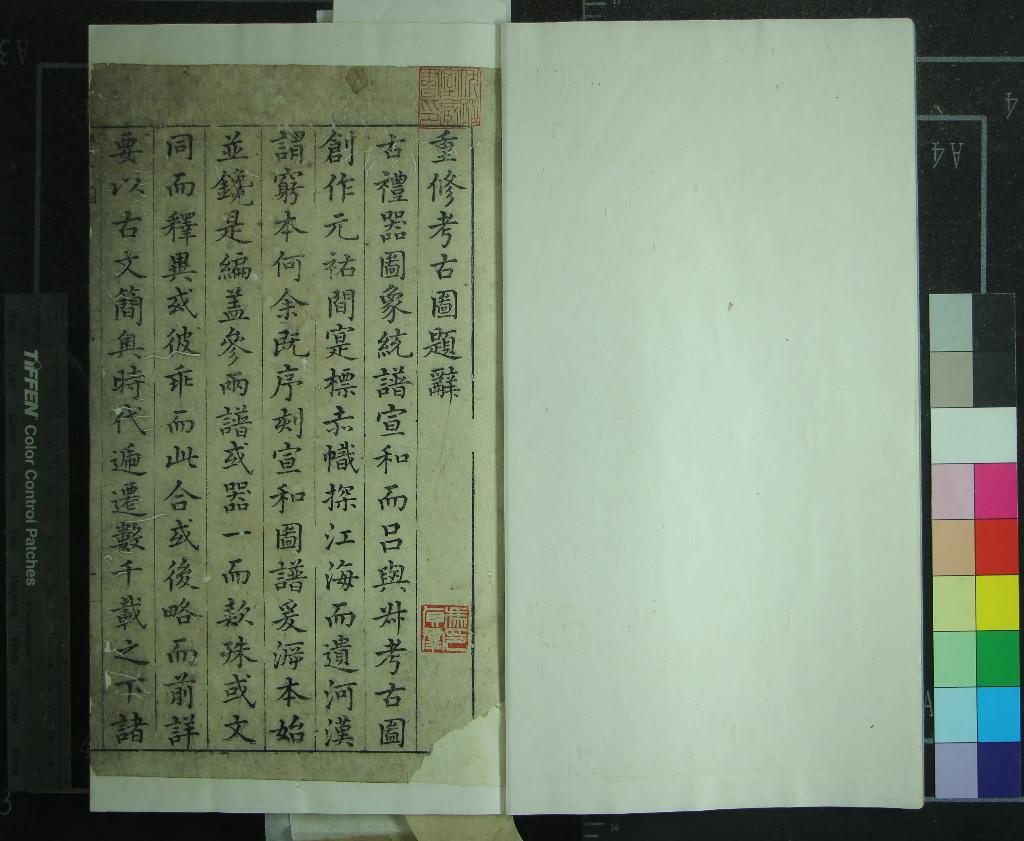 重修考古圖題辭
古禮器圖象統譜宣和而呂與叔考古圖
創作元祐間寔標赤幟探江海而遺河漢
謂窮本何余既序刻宣和圖譜爰泝本始
並鑱是編葢參兩譜或器一而款殊或文
同而釋異或彼乖而此合或後略而前詳
要以古文簡奥時代遞遷數千載之下諸
TIFFEN Color Control Patches
A4
4
A3
3
A